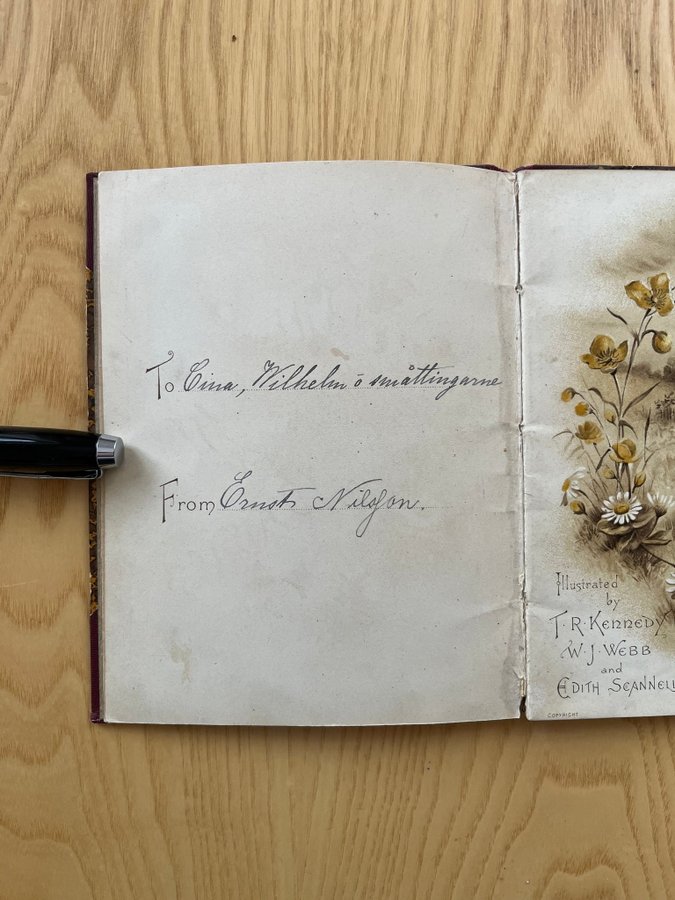 To Cina, Wilhelm ō småttingarne
From Ernst Nilsson.
Illustrated
by
T. R. KENNEDY
W. J. WEBB
and
EDITH SCANNELL
COPYRIGHT